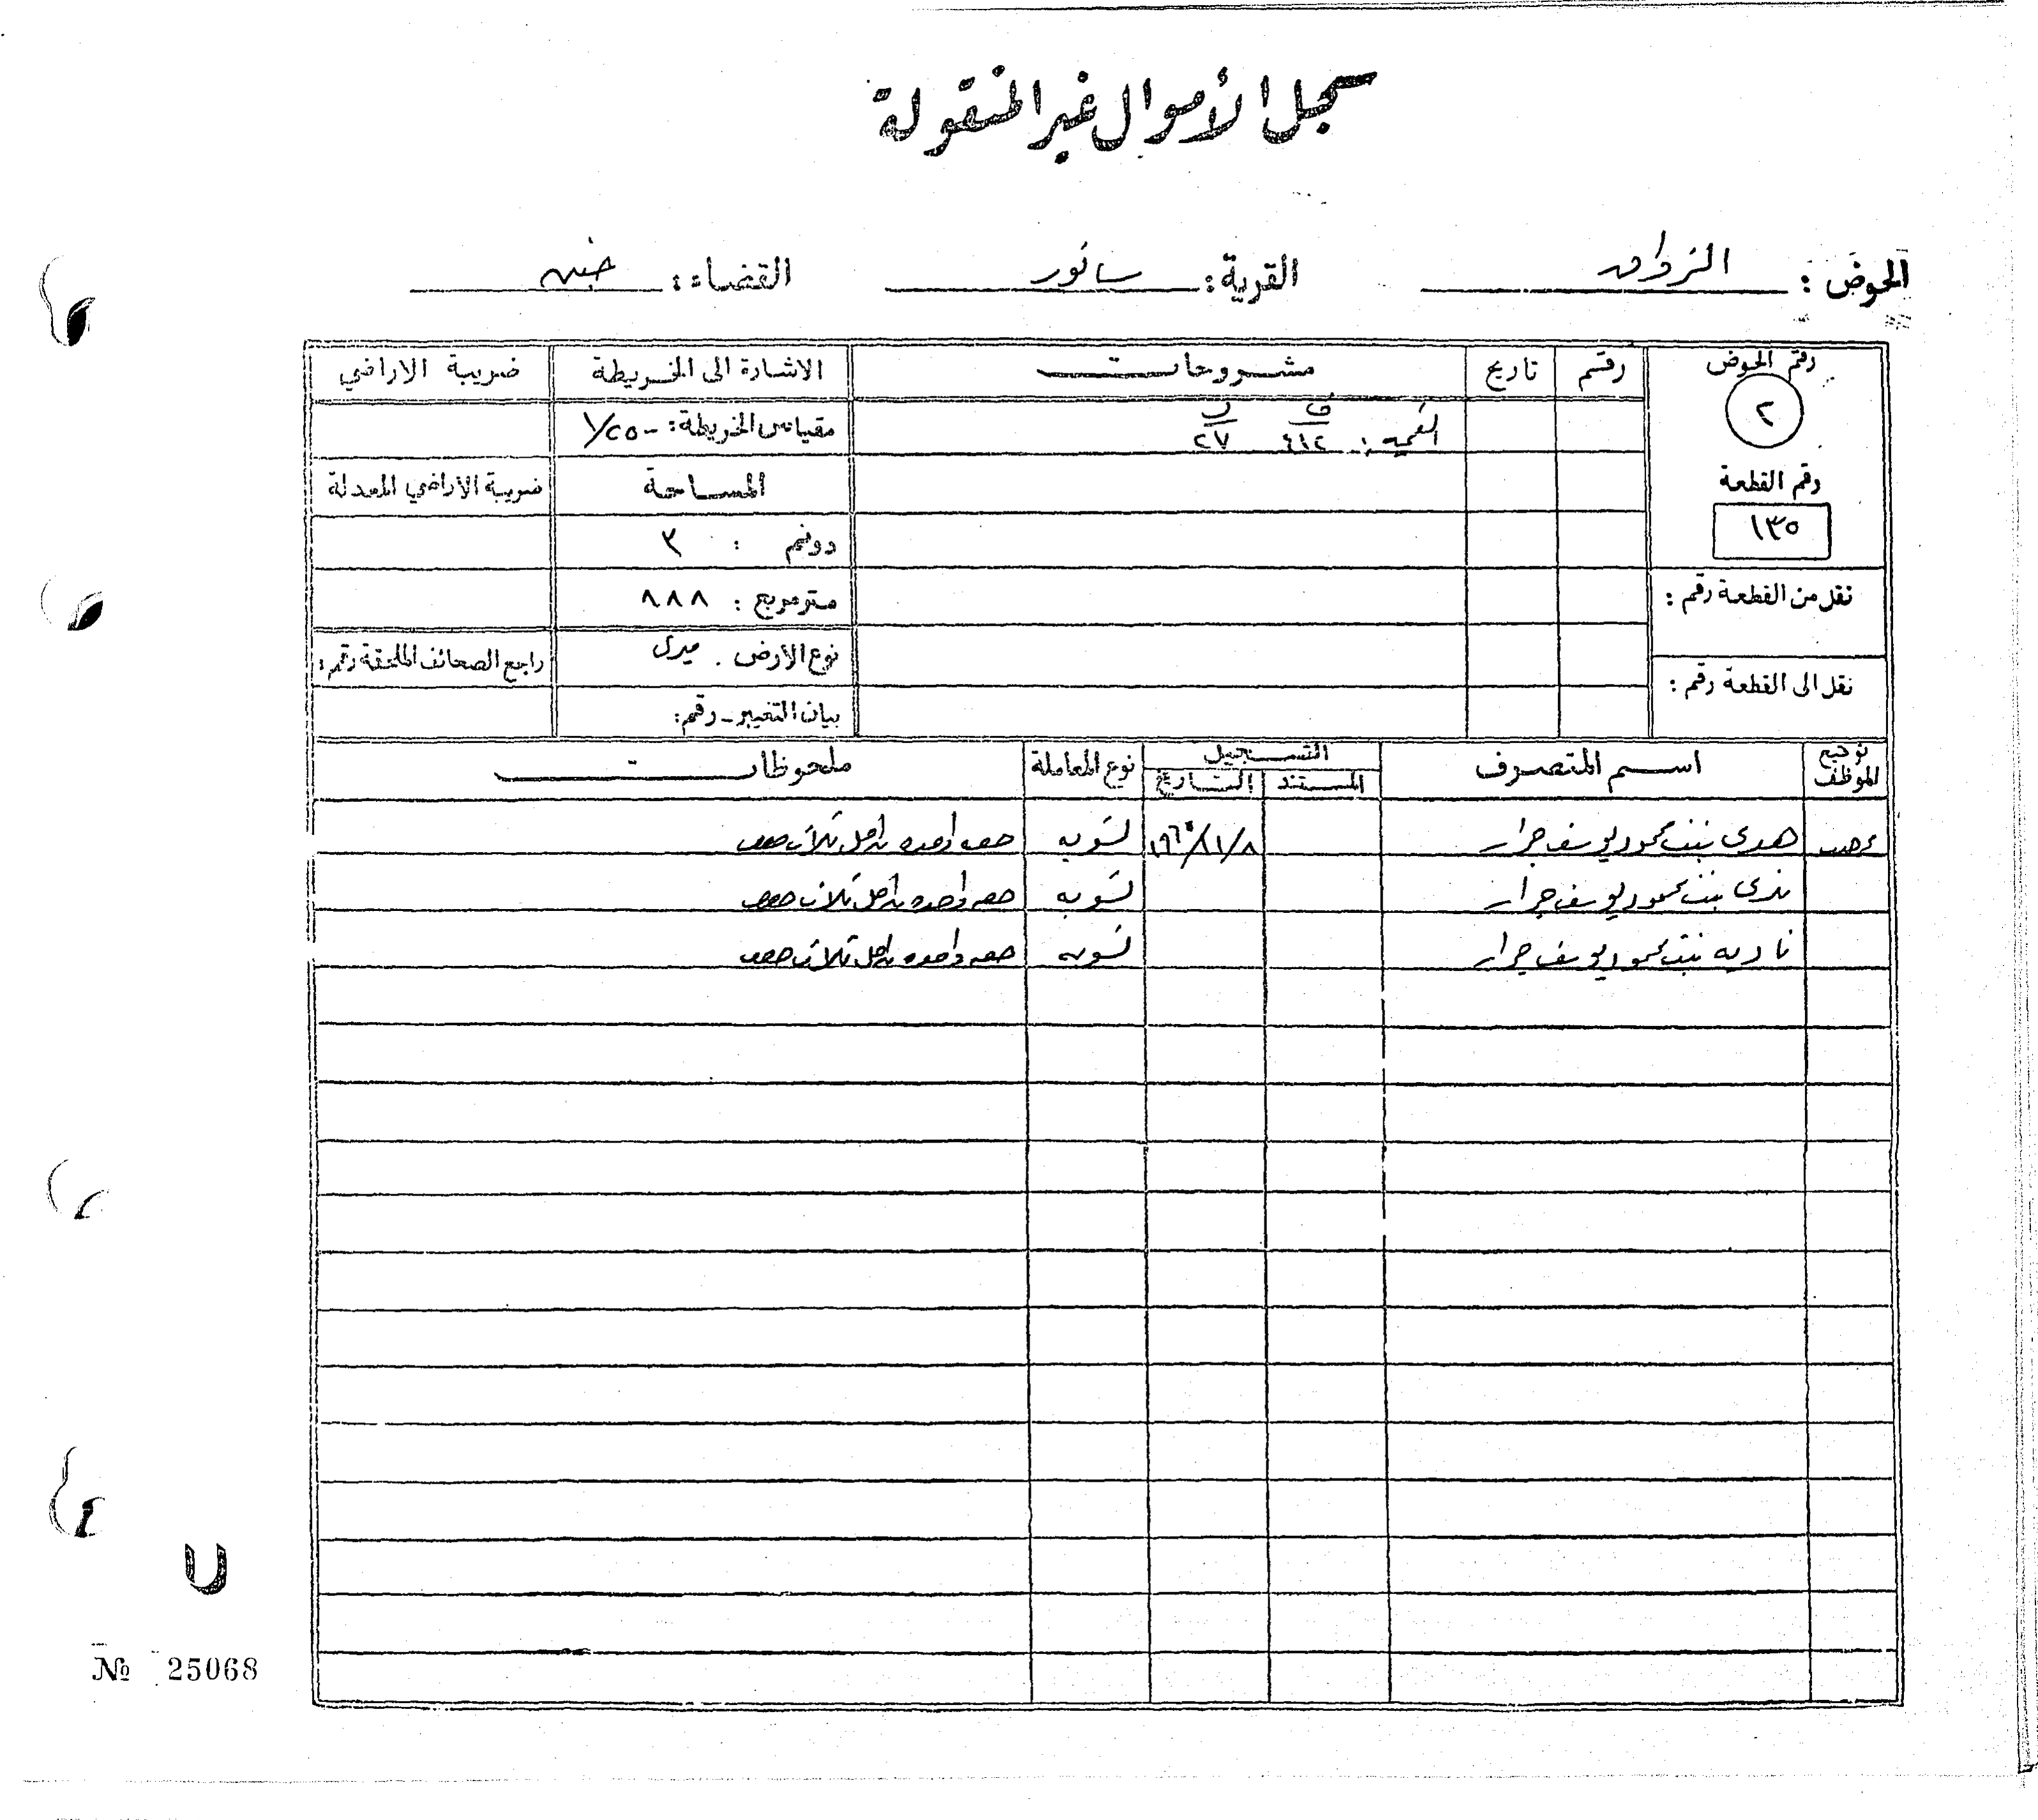 سجل الأموال غير المنقولة
الحوض: القرية: سانور القضاء: جنين
رقم الحوض رقم تاريخ مشروحات الاشارة الى الخريطة ضريبة الاراضي
٢
القيمه: ف ٤١٢ ل ٢٧
مقياس الخريطة: ١/٢٥٠٠
رقم القطعة
١٣٥
المساحة
ضريبة الاراضي المعدلة
دونم : ٣
متر مربع : ٨٨٨
نقل من القطعة رقم :
نوع الأرض . ميري
راجع الصحائف الملحقة رقم :
نقل الى القطعة رقم :
بيان التغيير - رقم:
توقيع الموظف اسم المتصرف التسجيل نوع المعاملة ملحوظات
المستند التاريخ
هدى بنت محمود يوسف جرار ٨/١/١٩٦٥ تسويه حصه واحده من اصل ثلاث حصص
ندى بنت محمود يوسف جرار تسويه حصه واحده من اصل ثلاث حصص
ناديه بنت محمود يوسف جرار تسويه حصه واحده من اصل ثلاث حصص
№ 25068